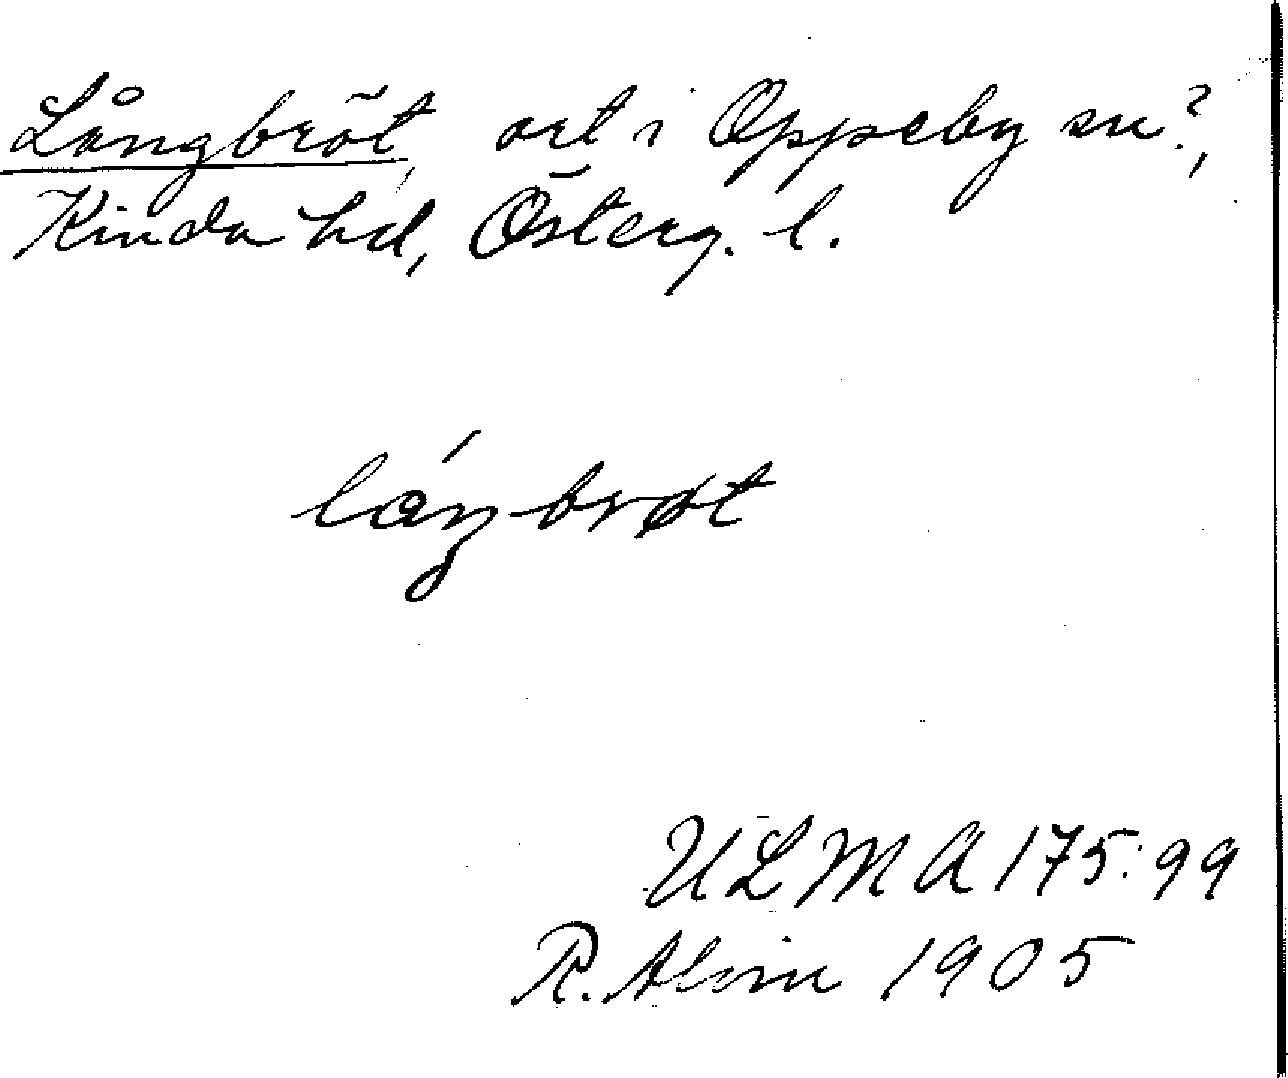 Långbröt, ort i Oppeby sn?,
Kinda hd, Österg. l.
láŋbrøt
ULMA 175:99
R. Alm 1905